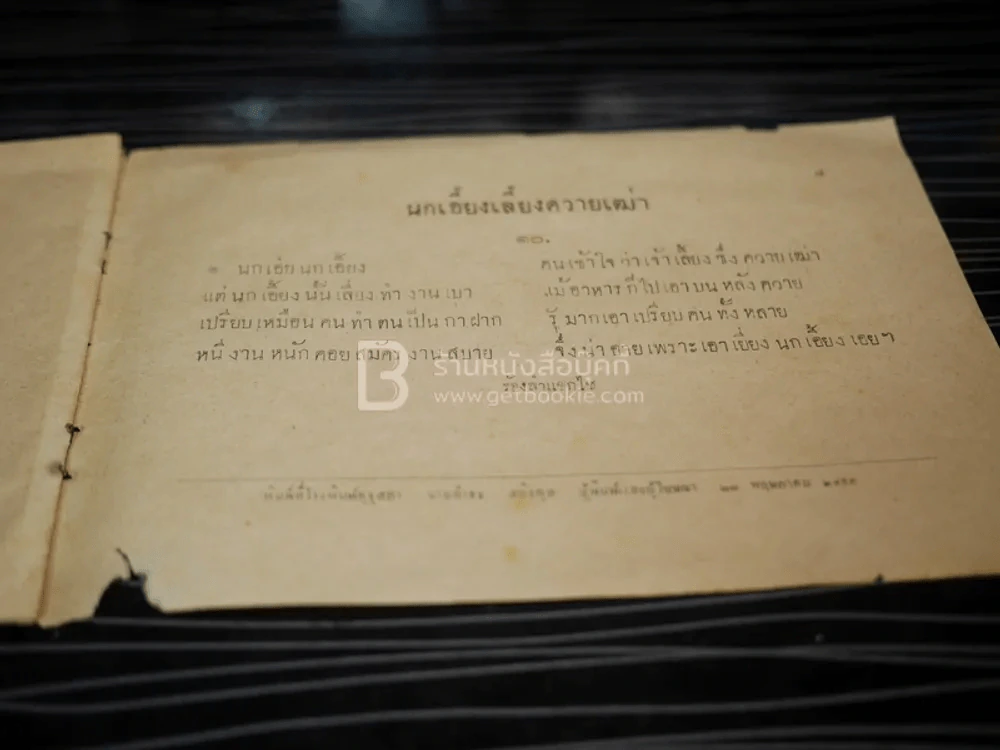 นกเอี้ยงเลี้ยงควายเฒ่า
๓๐.
๏ นกเอ๋ย นก เอี้ยง คน เข้า ใจ ว่า เจ้า เลี้ยง ซึ่ง ควาย เฒ่า
แต่ นก เอี้ยง นั้น เลี่ยง ทำ งาน เบา แม้ อาหาร ก็ ไป เอา บน หลัง ควาย
เปรียบ เหมือน คน ทำ ตน เป็น กา ฝาก รู้ มาก เอา เปรียบ คน ทั้ง หลาย
หนี งาน หนัก คอย สมัคร งาน สบาย จึง น่า อาย เพราะ เอา เยี่ยง นก เอี้ยง เอย ฯ
ร้านหนังสือบุ๊คกี้
www.getbookie.com
พิมพ์ที่โรงพิมพ์คุรุสภา ผู้พิมพ์และผู้โฆษณา พฤษภาคม